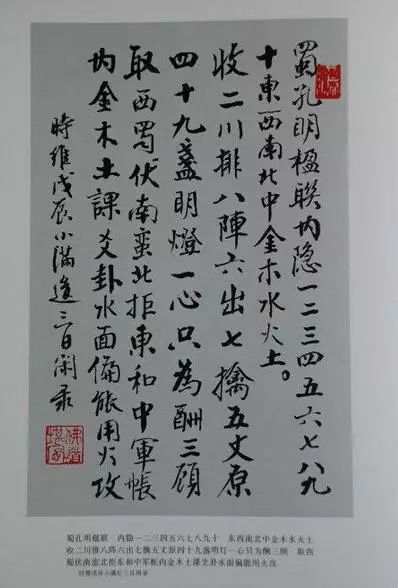 蜀孔明楹聯内隐一二三四五六七八九
十東西南北中金木水火土。
收二川排八陣六出七擒五丈原
四十九盞明燈一心只為酬三顧
取西蜀伏南蛮北拒東和中軍帳
内金木土課爻卦水面偏能用火攻
時維戊辰小滿後三日闲录
蜀孔明楹联 内隐一二三四五六七八九十 东西南北中金木水火土
收二川排八阵六出七擒五丈原四十九盏明灯一心只为酬三顾 取西
蜀伏南蛮北拒东和中军帐内金木土课爻卦水面偏能用火攻
时维戊辰小满后三日闲录